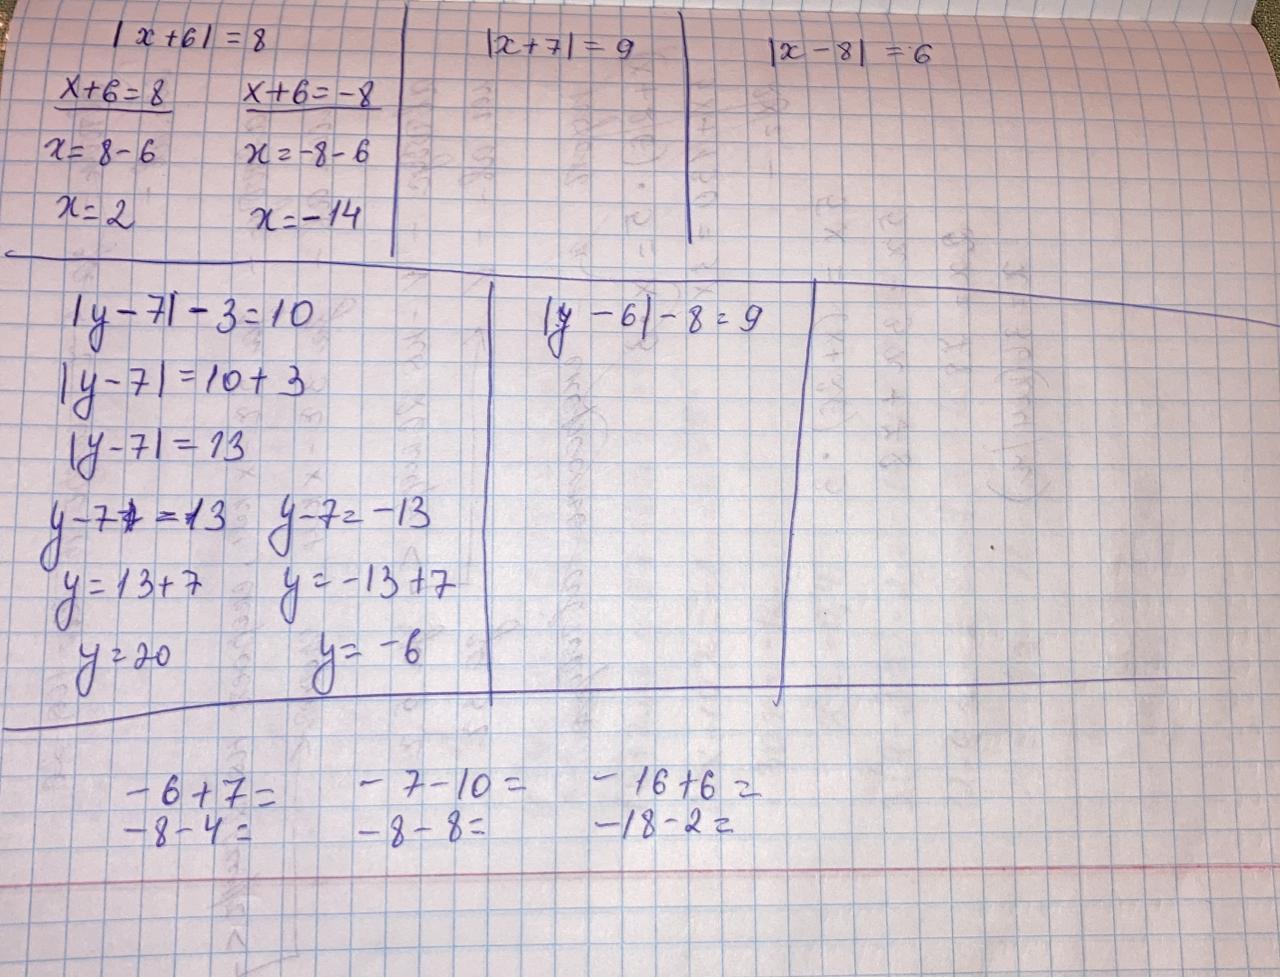 |x+6|=8
x+6=8 x+6=-8
x=8-6 x=-8-6
x=2 x=-14
|x+7|=9
|x-8|=6
|y-7|-3=10
|y-7|=10+3
|y-7|=13
y-7=13 y-7=-13
y=13+7 y=-13+7
y=20 y=-6
|y-6|-8=9
-6+7= -7-10= -16+6=
-8-4= -8-8= -18-2=